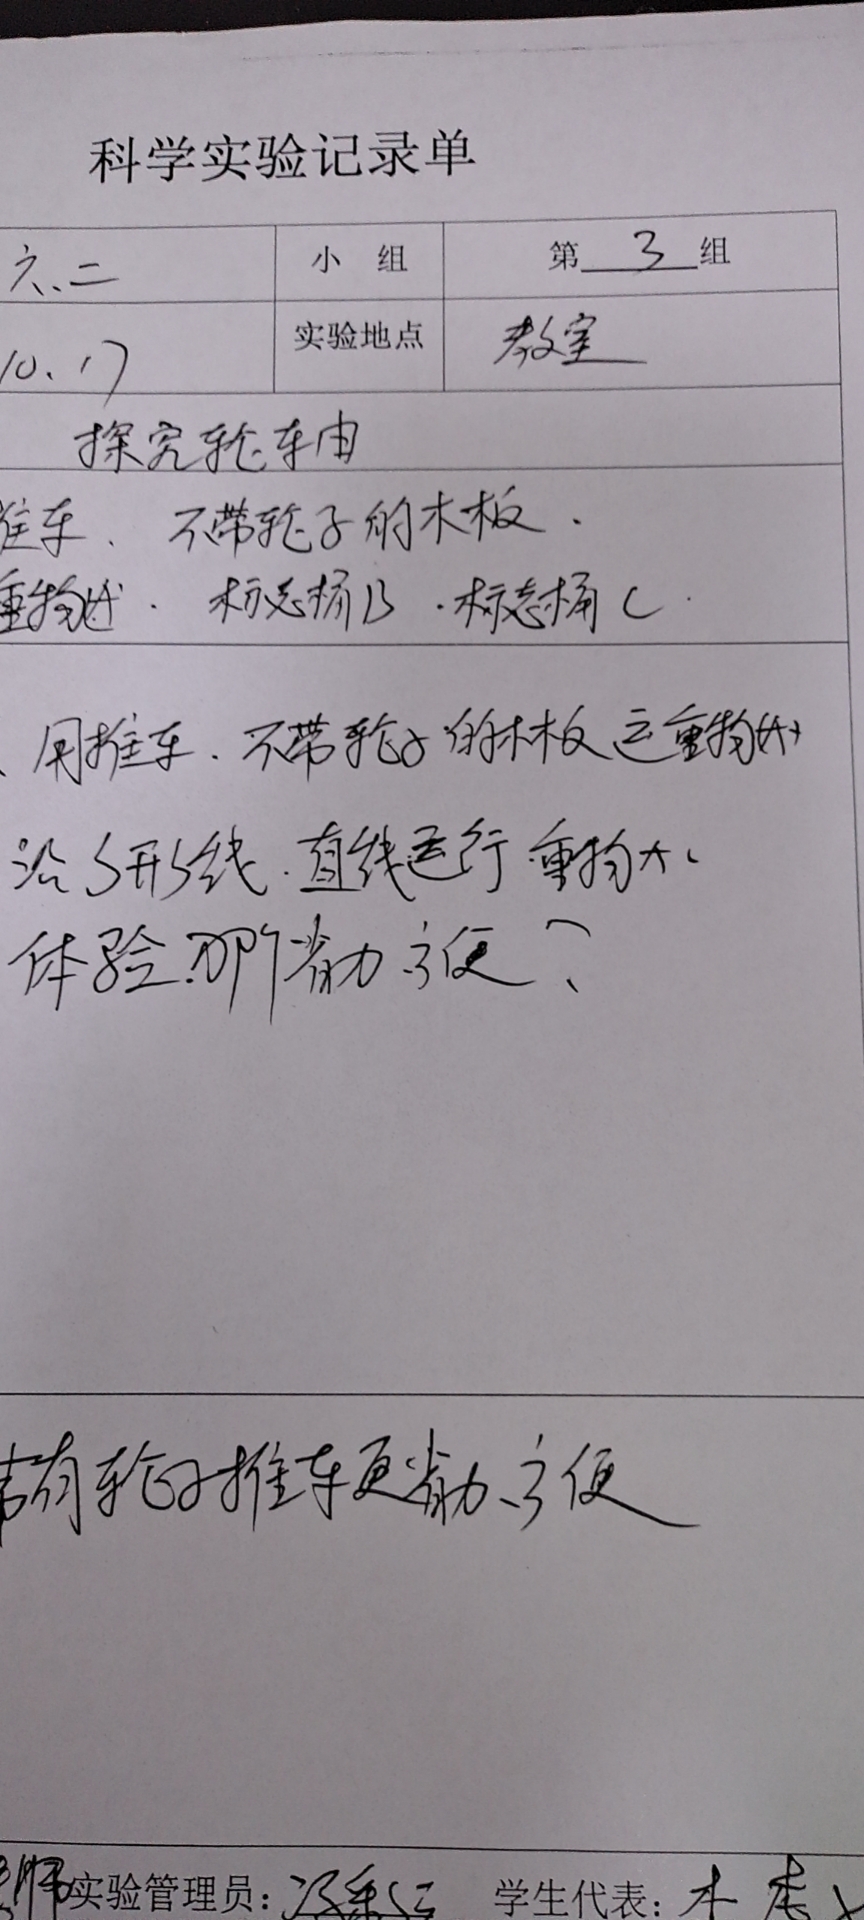 科学实验记录单
六.二 小 组 第 3 组
10.17 实验地点 教室
探究轮车由
推车. 不带轮子的木板.
重物 . 标志桶B.标志桶C.
、用推车.不带轮子的木板运重物
沿S形线.直线运行重物
体验.哪个省力.方便?
带有轮子推车更省力.方便
师 实验管理员: 学生代表: